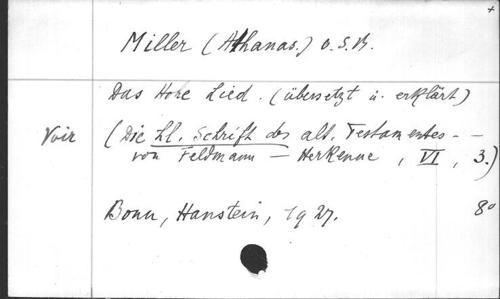 Miller (Athanas.) O.S.B.
Das Hohe Lied. (übersetzt u. erklärt)
Voir (Die Hl. Schrift des alt. Testamentes - -
von Feldmann – Herkenne, VI, 3.)
Bonn, Hanstein, 1927. 8°